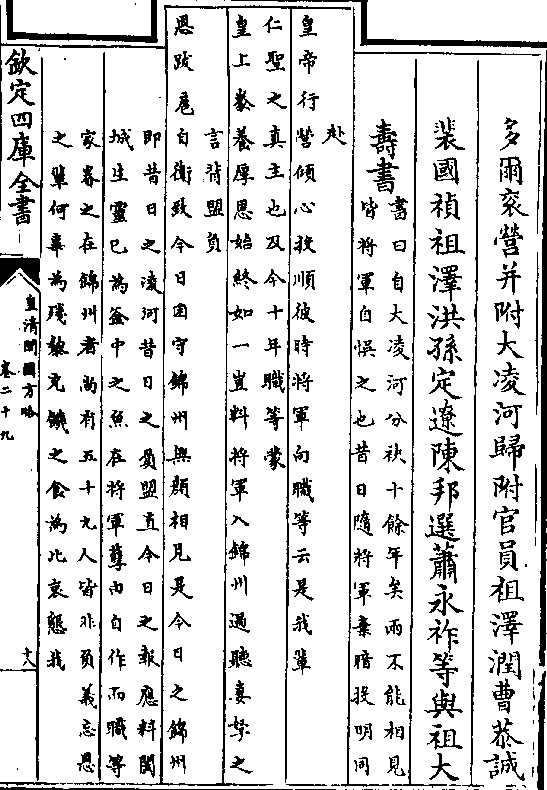 多爾袞營并附大凌河歸附官員祖澤潤曹恭誠
裴國禎祖澤洪孫定遼陳邦選蕭永祚等與祖大
壽書書曰自大凌河分袂十餘年矣兩不能相見
皆將軍自悞之也昔日隨將軍棄暗投明同
赴
皇帝行營傾心投順彼時將軍向職等云是我輩
仁聖之真主也及今十年職等蒙
皇上豢養厚恩始終如一豈料將軍入錦州過聽妻孥之
言背盟負
恩跋扈自衒致今日困守錦州無顏相見是今日之錦州
即昔日之凌河昔日之負盟直今日之報應料闔
城生靈已為釜中之魚在將軍孽由自作而職等
家眷之在錦州者尚有五十九人皆非負義忘恩
之輩何辜為殘黎充饑之食為此哀懇我
欽定四庫全書
皇清開國方略
卷二十九
十八